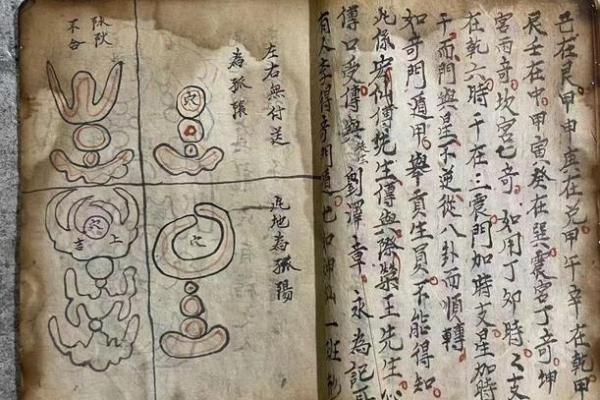 己在艮。甲申庚在兌甲午辛在乾甲
辰壬在中甲寅癸在巽震宮丁奇坤
宮丙奇。坎宮乙奇。如用丁卯時。々支
在乾六時干在三震門加時支星加時
干而門與星不逆從八卦而順轉
如奇門遁甲。舉貢生員不能得知。
此係仙傳先生傳與際榮王先生
傳口受傳與劉澤章永為記
有人得奇門遁也如神仙一班
左右無付送
為孤陽
穴
不合
此地為孤陽
穴
穴
上
吉